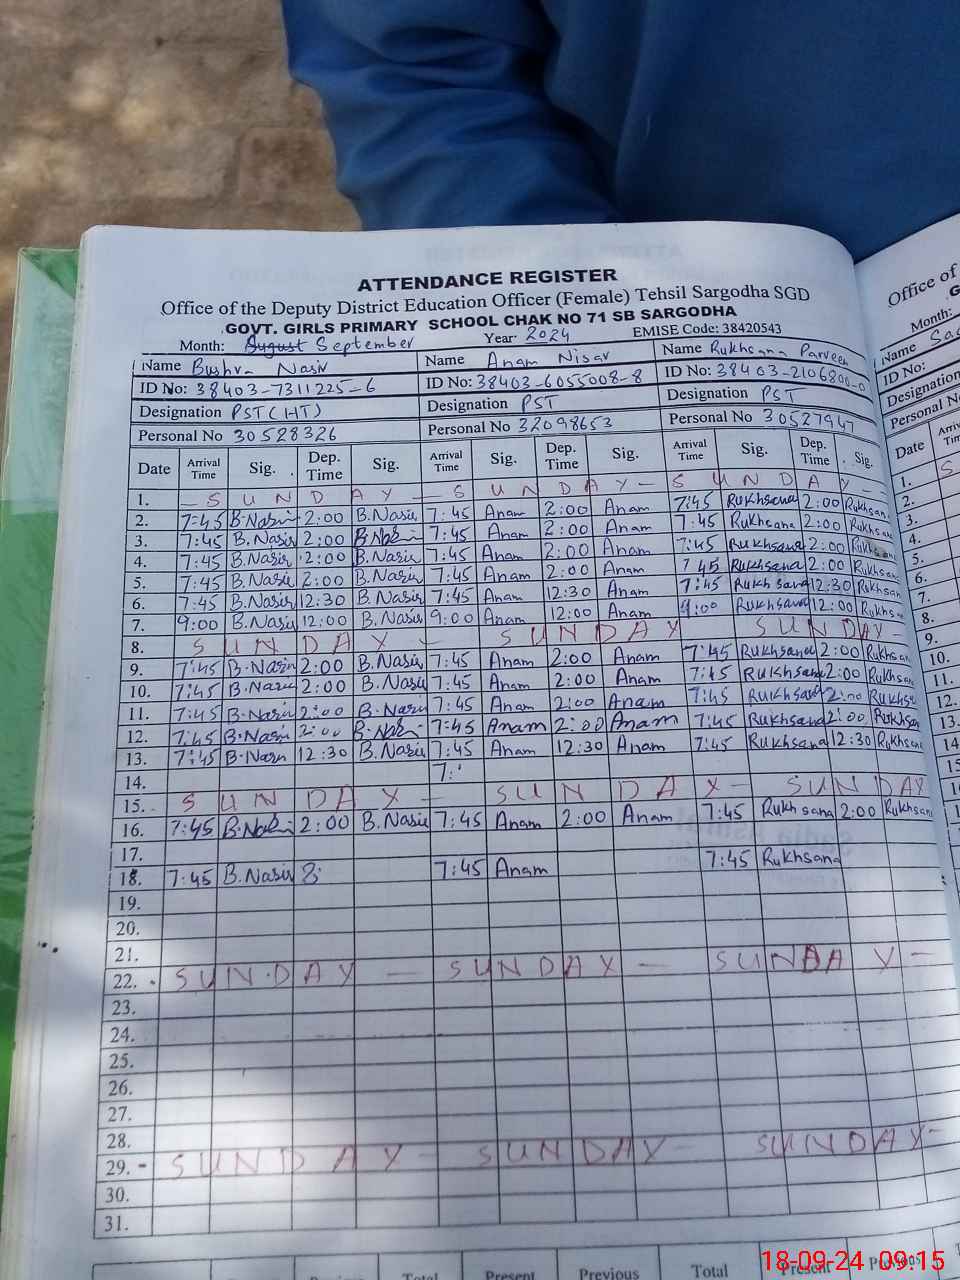 ATTENDANCE REGISTER
Office of the Deputy District Education Officer (Female) Tehsil Sargodha SGD
GOVT. GIRLS PRIMARY SCHOOL CHAK NO 71 SB SARGODHA
Month: August September Year 2024 EMISE Code: 38420543
Name Bushra Nasir Name Anam Nisar Name Rukhsana Parveen
ID No: 38403-7311225-6 ID No: 38403-6055008-8 ID No: 38403-2106800-0
Designation PST (HT) Designation PST Designation PST
Personal No 30528326 Personal No 32098653 Personal No 30527947
Date Arrival Time Sig. Dep. Time Sig. Arrival Time Sig. Dep. Time Sig. Arrival Time Sig. Dep. Time Sig.
1. - SUNDAY - SUNDAY - SUNDAY -
2. 7:45 B.Nasir 2:00 B.Nasir 7:45 Anam 2:00 Anam 7:45 Rukhsana 2:00 Rukhsan
3. 7:45 B.Nasir 2:00 B.Nasir 7:45 Anam 2:00 Anam 7:45 Rukhsana 2:00 Rukhsn
4. 7:45 B.Nasir 2:00 B.Nasir 7:45 Anam 2:00 Anam 7:45 Rukhsana 2:00 Rukhsa
5. 7:45 B.Nasir 2:00 B.Nasir 7:45 Anam 2:00 Anam 7:45 Rukhsana 2:00 Rukhsan
6. 7:45 B.Nasir 12:30 B.Nasir 7:45 Anam 12:30 Anam 7:45 Rukhsana 12:30 Rukhsa
7. 9:00 B.Nasir 12:00 B.Nasir 9:00 Anam 12:00 Anam 9:00 Rukhsana 12:00 Rukhsa
8. SUNDAY - SUNDAY SUNDAY -
9. 7:45 B.Nasir 2:00 B.Nasir 7:45 Anam 2:00 Anam 7:45 Rukhsana 2:00 Rukhsan
10. 7:45 B.Nasir 2:00 B.Nasir 7:45 Anam 2:00 Anam 7:45 Rukhsana 2:00 Rukhsan
11. 7:45 B.Nasir 2:00 B.Nasir 7:45 Anam 2:00 Anam 7:45 Rukhsana 2:00 Rukhsa
12. 7:45 B.Nasir 2:00 B.Nasir 7:45 Anam 2:00 Anam 7:45 Rukhsana 2:00 Rukhsan
13. 7:45 B.Nasir 12:30 B.Nasir 7:45 Anam 12:30 Anam 7:45 Rukhsana 12:30 Rukhsana
14. 7:
15. SUNDAY - SUNDAY - SUNDAY
16. 7:45 B.Nasir 2:00 B.Nasir 7:45 Anam 2:00 Anam 7:45 Rukhsana 2:00 Rukhsan
17.
18. 7:45 B.Nasir 7:45 Anam 7:45 Rukhsana
19.
20.
21.
22. SUNDAY - SUNDAY - SUNDAY -
23.
24.
25.
26.
27.
28.
29. - SUNDAY - SUNDAY - SUNDAY -
30.
31.
Total Present Previous Total Present Previous
Office of
Month:
Name
ID No:
Designation
Personal No
Date
1.
2.
3.
4.
5.
6.
7.
8.
9.
10.
11.
12.
13.
14
18-09-24 09:15